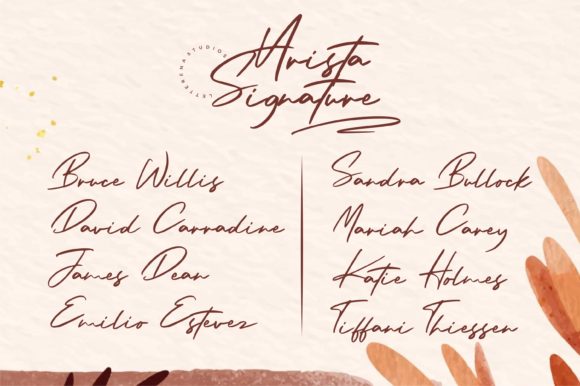 LETTERENA STUDIOS
Arista
Signature
Bruce Willis
David Carradine
James Dean
Emilio Estevez
Sandra Bullock
Mariah Carey
Katie Holmes
Tiffani Thiessen